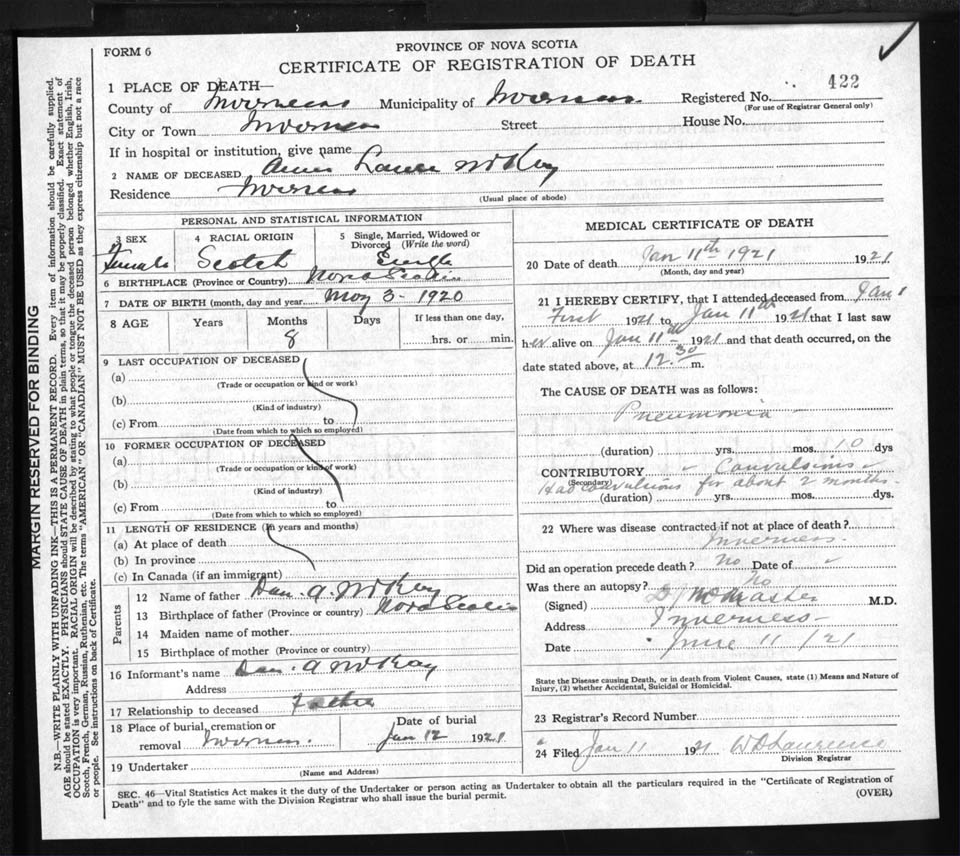 FORM 6
PROVINCE OF NOVA SCOTIA
CERTIFICATE OF REGISTRATION OF DEATH
1 PLACE OF DEATH—
County of Inverness Municipality of Inverness Registered No. 422
(For use of Registrar General only)
City or Town Inverness Street House No.
If in hospital or institution, give name
2 NAME OF DECEASED Annie McKay
Residence Inverness
(Usual place of abode)
PERSONAL AND STATISTICAL INFORMATION
3 SEX 4 RACIAL ORIGIN 5 Single, Married, Widowed or
Divorced (Write the word)
Female Scotch Single
6 BIRTHPLACE (Province or Country) Nova Scotia
7 DATE OF BIRTH (month, day and year) May 3 - 1920
8 AGE Years Months Days If less than one day,
8 hrs. or min.
9 LAST OCCUPATION OF DECEASED
(a)
(Trade or occupation or kind or work)
(b)
(Kind of industry)
(c) From to
(Date from which to which so employed)
10 FORMER OCCUPATION OF DECEASED
(a)
(Trade or occupation or kind of work)
(b)
(Kind of industry)
(c) From to
(Date from which to which so employed)
11 LENGTH OF RESIDENCE (In years and months)
(a) At place of death
(b) In province
(c) In Canada (if an immigrant)
Parents
12 Name of father Dan. A. McKay
13 Birthplace of father (Province or country) Nova Scotia
14 Maiden name of mother
15 Birthplace of mother (Province or country)
16 Informant's name Dan. A McKay
Address
17 Relationship to deceased Father
18 Place of burial, cremation or Date of burial
removal Inverness. Jan 12 1921
19 Undertaker
(Name and Address)
MEDICAL CERTIFICATE OF DEATH
20 Date of death Jan 11th 1921 1921
(Month, day and year)
21 I HEREBY CERTIFY, that I attended deceased from Jan
First 1921 to Jan 11th 1921 that I last saw
her alive on Jan 11th 1921 and that death occurred, on the
date stated above, at 12.30 m.
The CAUSE OF DEATH was as follows:
Pneumonia
(duration) yrs. mos. 10 dys
CONTRIBUTORY Convulsions
(Secondary) Had convulsions for about 2 months
(duration) yrs. mos. dys.
22 Where was disease contracted if not at place of death?
Inverness.
Did an operation precede death? No Date of
Was there an autopsy? No
(Signed) McMaster M.D.
Address Inverness
Date June 11/21
State the Disease causing Death, or in death from Violent Causes, state (1) Means and Nature of
Injury, (2) whether Accidental, Suicidal or Homicidal.
23 Registrar's Record Number
24 Filed Jan 11 1921 W D Lawrence
Division Registrar
SEC. 46—Vital Statistics Act makes it the duty of the Undertaker or person acting as Undertaker to obtain all the particulars required in the "Certificate of Registration of
Death" and to fyle the same with the Division Registrar who shall issue the burial permit. (OVER)
MARGIN RESERVED FOR BINDING
N.B.—WRITE PLAINLY WITH UNFADING INK—THIS IS A PERMANENT RECORD. Every item of information should be carefully supplied.
AGE should be stated EXACTLY. PHYSICIANS should STATE CAUSE OF DEATH in plain terms, so that it may be properly classified. Exact statement of
OCCUPATION is very important. RACIAL ORIGIN will be described by stating to what people or tongue the deceased person belonged whether English, Irish,
Scotch, French, German, Russian, Ruthenian, etc. The terms "AMERICAN" OR "CANADIAN" MUST NOT BE USED as they express citizenship but not a race
or people. See instructions on back of Certificate.